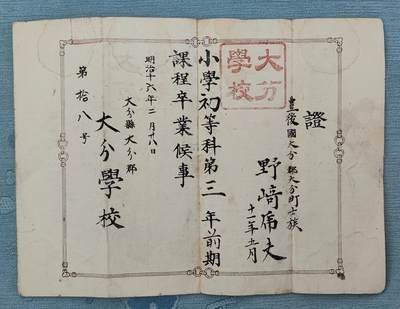 證
豊後國大分郡大分町士族
野﨑虎丈
十一年五月
小學初等科第三年前期
課程卒業候事
明治十六年二月十八日
大分縣大分郡
大分學校
第拾八号
大分
學校